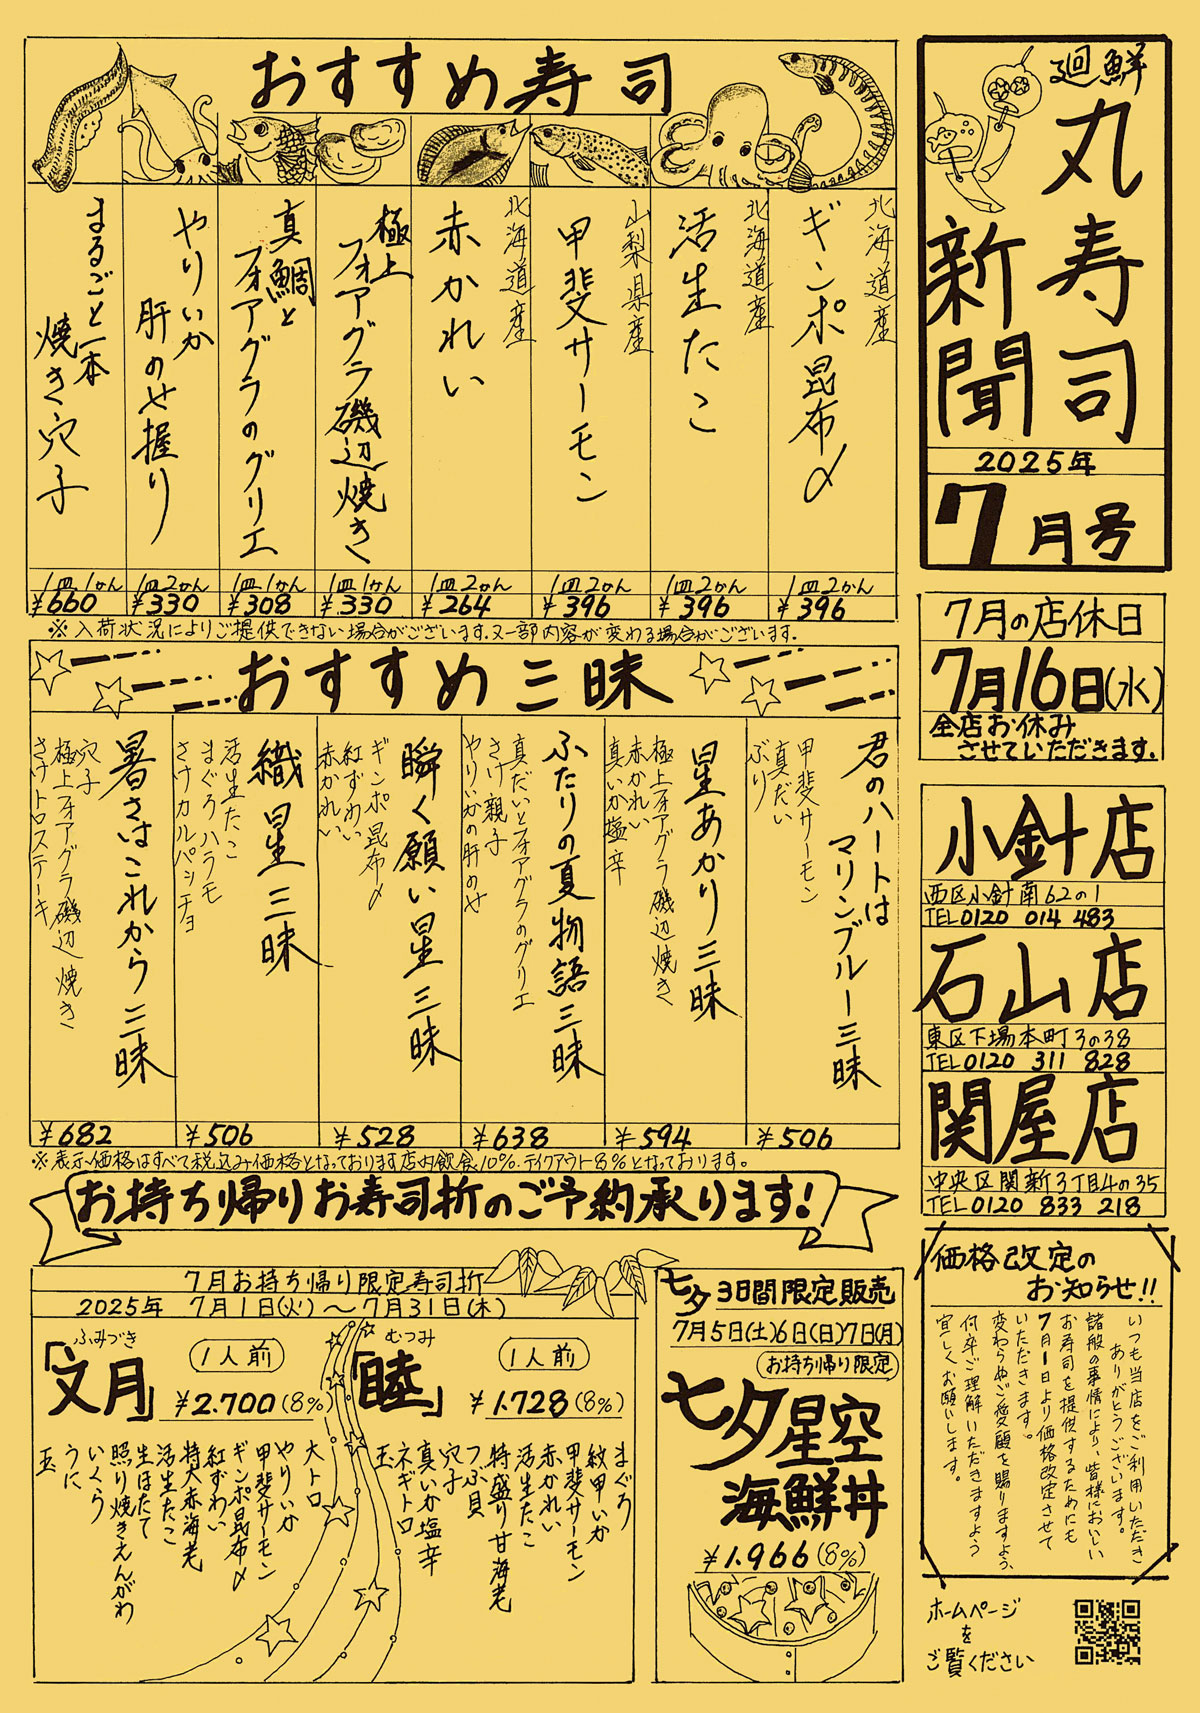 廻鮮
丸寿司
新聞
2025年
7月号
おすすめ寿司
北海道産
ギンポ昆布〆
1皿2かん
¥396
北海道産
活生たこ
1皿2かん
¥396
山梨県産
甲斐サーモン
1皿2かん
¥396
北海道産
赤かれい
1皿2かん
¥264
極上
フォアグラ磯辺焼き
1皿1かん
¥330
真鯛と
フォアグラのグリエ
1皿1かん
¥308
やりいか
肝のせ握り
1皿2かん
¥330
まるごと一本
焼き穴子
1皿1かん
¥660
※入荷状況によりご提供できない場合がございます。又一部内容が変わる場合がございます。
7月の店休日
7月16日(水)
全店お休み
させていただきます。
おすすめ三昧
君のハートは
マリンブルー三昧
甲斐サーモン
真だい
ぶり
¥506
星あかり三昧
極上フォアグラ磯辺焼き
赤かれい
真いか塩辛
¥594
ふたりの夏物語三昧
真だいとフォアグラのグリエ
さけ親子
やりいかの肝のせ
¥638
瞬く願い星三昧
ギンポ昆布〆
紅ずわい
赤かれい
¥528
織星三昧
活生たこ
まぐろハラモ
さけカルパッチョ
¥506
暑さはこれから三昧
穴子
極上フォアグラ磯辺焼き
さけトロステーキ
¥682
※表示価格はすべて税込み価格となっております店内飲食10%.テイクアウト8%となっております。
小針店
西区小針南62の1
TEL0120 014 483
石山店
東区下場本町3の38
TEL0120 311 828
関屋店
中央区関新3丁目4の35
TEL0120 833 218
お持ち帰りお寿司折のご予約承ります!
7月お持ち帰り限定寿司折
2025年 7月1日(火)～7月31日(木)
ふみづき
「文月」
1人前
¥2.700(8%)
大トロ
やりいか
甲斐サーモン
ギンポ昆布〆
紅ずわい
特大赤海老
活生たこ
生ほたて
照り焼きえんがわ
いくら
うに
玉
むつみ
「睦」
1人前
¥1.728(8%)
まぐろ
紋甲いか
甲斐サーモン
赤かれい
活生たこ
特盛り甘海老
つぶ貝
穴子
真いか塩辛
ネギトロ
玉
七夕3日間限定販売
7月5日(土)6日(日)7日(月)
お持ち帰り限定
七夕星空
海鮮丼
¥1.966(8%)
価格改定の
お知らせ!!
いつも当店をご利用いただき
ありがとうございます。
諸般の事情により、皆様においしい
お寿司を提供するためにも
7月1日より価格改定させて
いただきます。
変わらぬご愛顧を賜りますよう、
何卒ご理解いただきますよう
宜しくお願いします。
ホームページ
を
ご覧ください